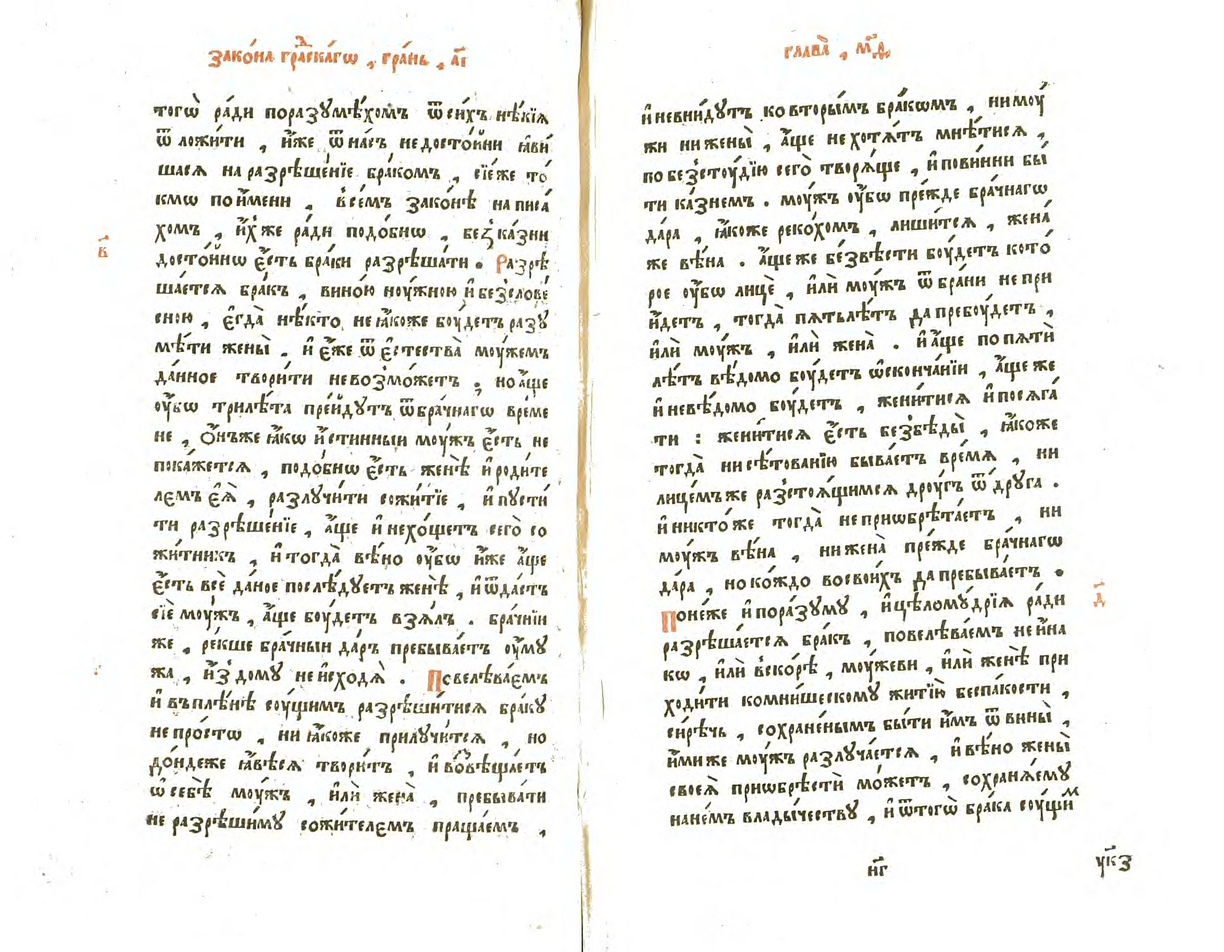 Зако́на гра́дскагѡ , гра́нь , а҃і
тогѡ̀ ра́ди поразꙋмѣ́хомъ ѿ си́хъ нѣ́кїѧ
ѿ ложи́ти , и҆́же ѿ на́съ недосто́йни ꙗ҆ви́
шасѧ на разрѣше́нїе бра́комъ , сїе́же то́
кмѡ по и҆́мени , все́мъ зако́нѣ написа́
хомъ , и҆́хже ра́ди подо́бнѡ , беѕка́зни
досто́йнѡ є҆́сть бра́ки разрѣша́ти . Разрѣ
в҃
ша́етсѧ бра́къ , вино́ю ноу́жною и҆ безслове́
сною , є҆гда̀ нѣ́кто не ꙗ҆́коже боу́детъ разꙋ
мѣ́ти жены̀ . и҆ є҆́же ѿ є҆стества̀ моу́жемъ
да́нное твори́ти невозмо́жетъ . но а҆́ще
оу҆́бѡ трилѣ́та пре́йдꙋтъ ѿбра́чнагѡ вре́ме
не , ѻ҆́нъже ꙗ҆́кѡ и҆́стинныи моу́жъ є҆́сть не
пока́жетсѧ , подо́бнѡ є҆́сть женѣ̀ и҆ роди́те
лємъ є҆ѧ̀ , разлꙋчи́ти сожи́тїе , и҆ пꙋсти́
ти разрѣше́нїе , а҆́ще и҆ нехо́щетъ сего̀ со
жи́тникъ , и҆ тогда̀ вѣ́но оу҆́бѡ и҆́же а҆́ще
є҆́сть всѐ даное послѣ́дꙋетъ женѣ̀ , и҆ ѿда́стъ
сїѐ моу́жъ , а҆́ще боу́детъ взѧ́лъ . бра́чнїи
же , ре́кше бра́чныи да́ръ пребыва́етъ оу҆мꙋ
жа , и҆́з̾ домꙋ не и҆сходѧ̀ . Повелѣва́ємъ
и҆ въ плѣ́нѣ соу́щимъ разрѣши́тисѧ бра́кꙋ
не про́стѡ , ни ꙗ҆́коже прилꙋчи́тсѧ , но
до́ндеже ꙗ҆́вѣсѧ твори́тъ , и҆ во́звѣща́етъ
ѡ҆ себѣ̀ моу́жъ , и҆лѝ жена̀ , пребыва́ти
не разрѣ́шимꙋ сожи́телємъ праща́емъ ,
глава̀ , м҃ѳ
и҆ невни́дꙋтъ ко вторы́мъ бра́кѡмъ , ни моу́
жи ни жены̀ , а҆́ще не хотѧ́тъ мнѣ́тисѧ ,
по безстоу́дїю сего̀ творѧ́ще , и҆ пови́нни бы́
ти ка́знемъ . моу́жъ оу҆́бѡ пре́жде бра́чнагѡ
да́ра , ꙗ҆́коже реко́хомъ , лиши́тсѧ , жена́
же вѣ́на . а҆́ще же безвѣ́сти боу́детъ кото́
рое оу҆́бѡ лицѐ , и҆лѝ моу́жъ ѿ бра́ни не при
и҆́детъ , тогда̀ пѧ́тьлѣ́тъ да пребоу́детъ ,
и҆лѝ моу́жъ , и҆лѝ жена̀ . и҆ а҆́ще по пѧтѝ
лѣ́тъ вѣ́домо боу́детъ ѡ҆ сконча́нїи , а҆́ще же
и҆ невѣ́домо боу́детъ , жени́тисѧ и҆ посѧга́
ти : жени́тисѧ є҆́сть без̾бѣды̀ , ꙗ҆́коже
тогда̀ ни сѣ́тованїю быва́етъ вре́мѧ , ни
лице́мъже разстоѧ́щимсѧ дроу́гъ ѿ дрꙋга .
и҆ никто́же тогда̀ не приѡбрѣта́етъ , ни
моу́жъ вѣ́на , ни жена̀ пре́жде бра́чнагѡ
да́ра , но ко́ждо во свои́хъ да пребыва́етъ .
Поне́же и҆ по ра́зꙋмꙋ , и҆ цѣломꙋ́дрїѧ ра́ди
д҃
разрѣша́етсѧ бра́къ , повелѣва́ем не и҆́на
кѡ , и҆лѝ вско́рѣ , моу́жеви , и҆лѝ женѣ̀ при
ходи́ти комни́шескомꙋ житїю̀ беспа́кости ,
си́рѣчь , сохране́нымъ бы́ти и҆̀мъ ѿ вины̀ ,
и҆́миже моу́жъ разлꙋча́етсѧ , и҆ вѣ́но жены̀
своеѧ̀ приѡбрѣстѝ мо́жетъ , сохранѧ́емꙋ
нане́мъ влады́чествꙋ , и҆ ѿтого̀ бра́ка соу́щим
н҃г
ук҃з